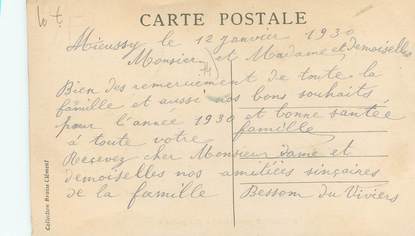 lot.
CARTE POSTALE
Mieussy le 12 janvier 1930
Monsier et Madame et demoiselles
Bien des remerciement de toute la
famille et aussi nos bons souhaits
pour l'année 1930 et bonne santée
à toute votre famille
Recevez cher Monsieur dame et
demoiselles nos amitiées singaires
de la famille Bessom du Viviers
Collection Braise Clément